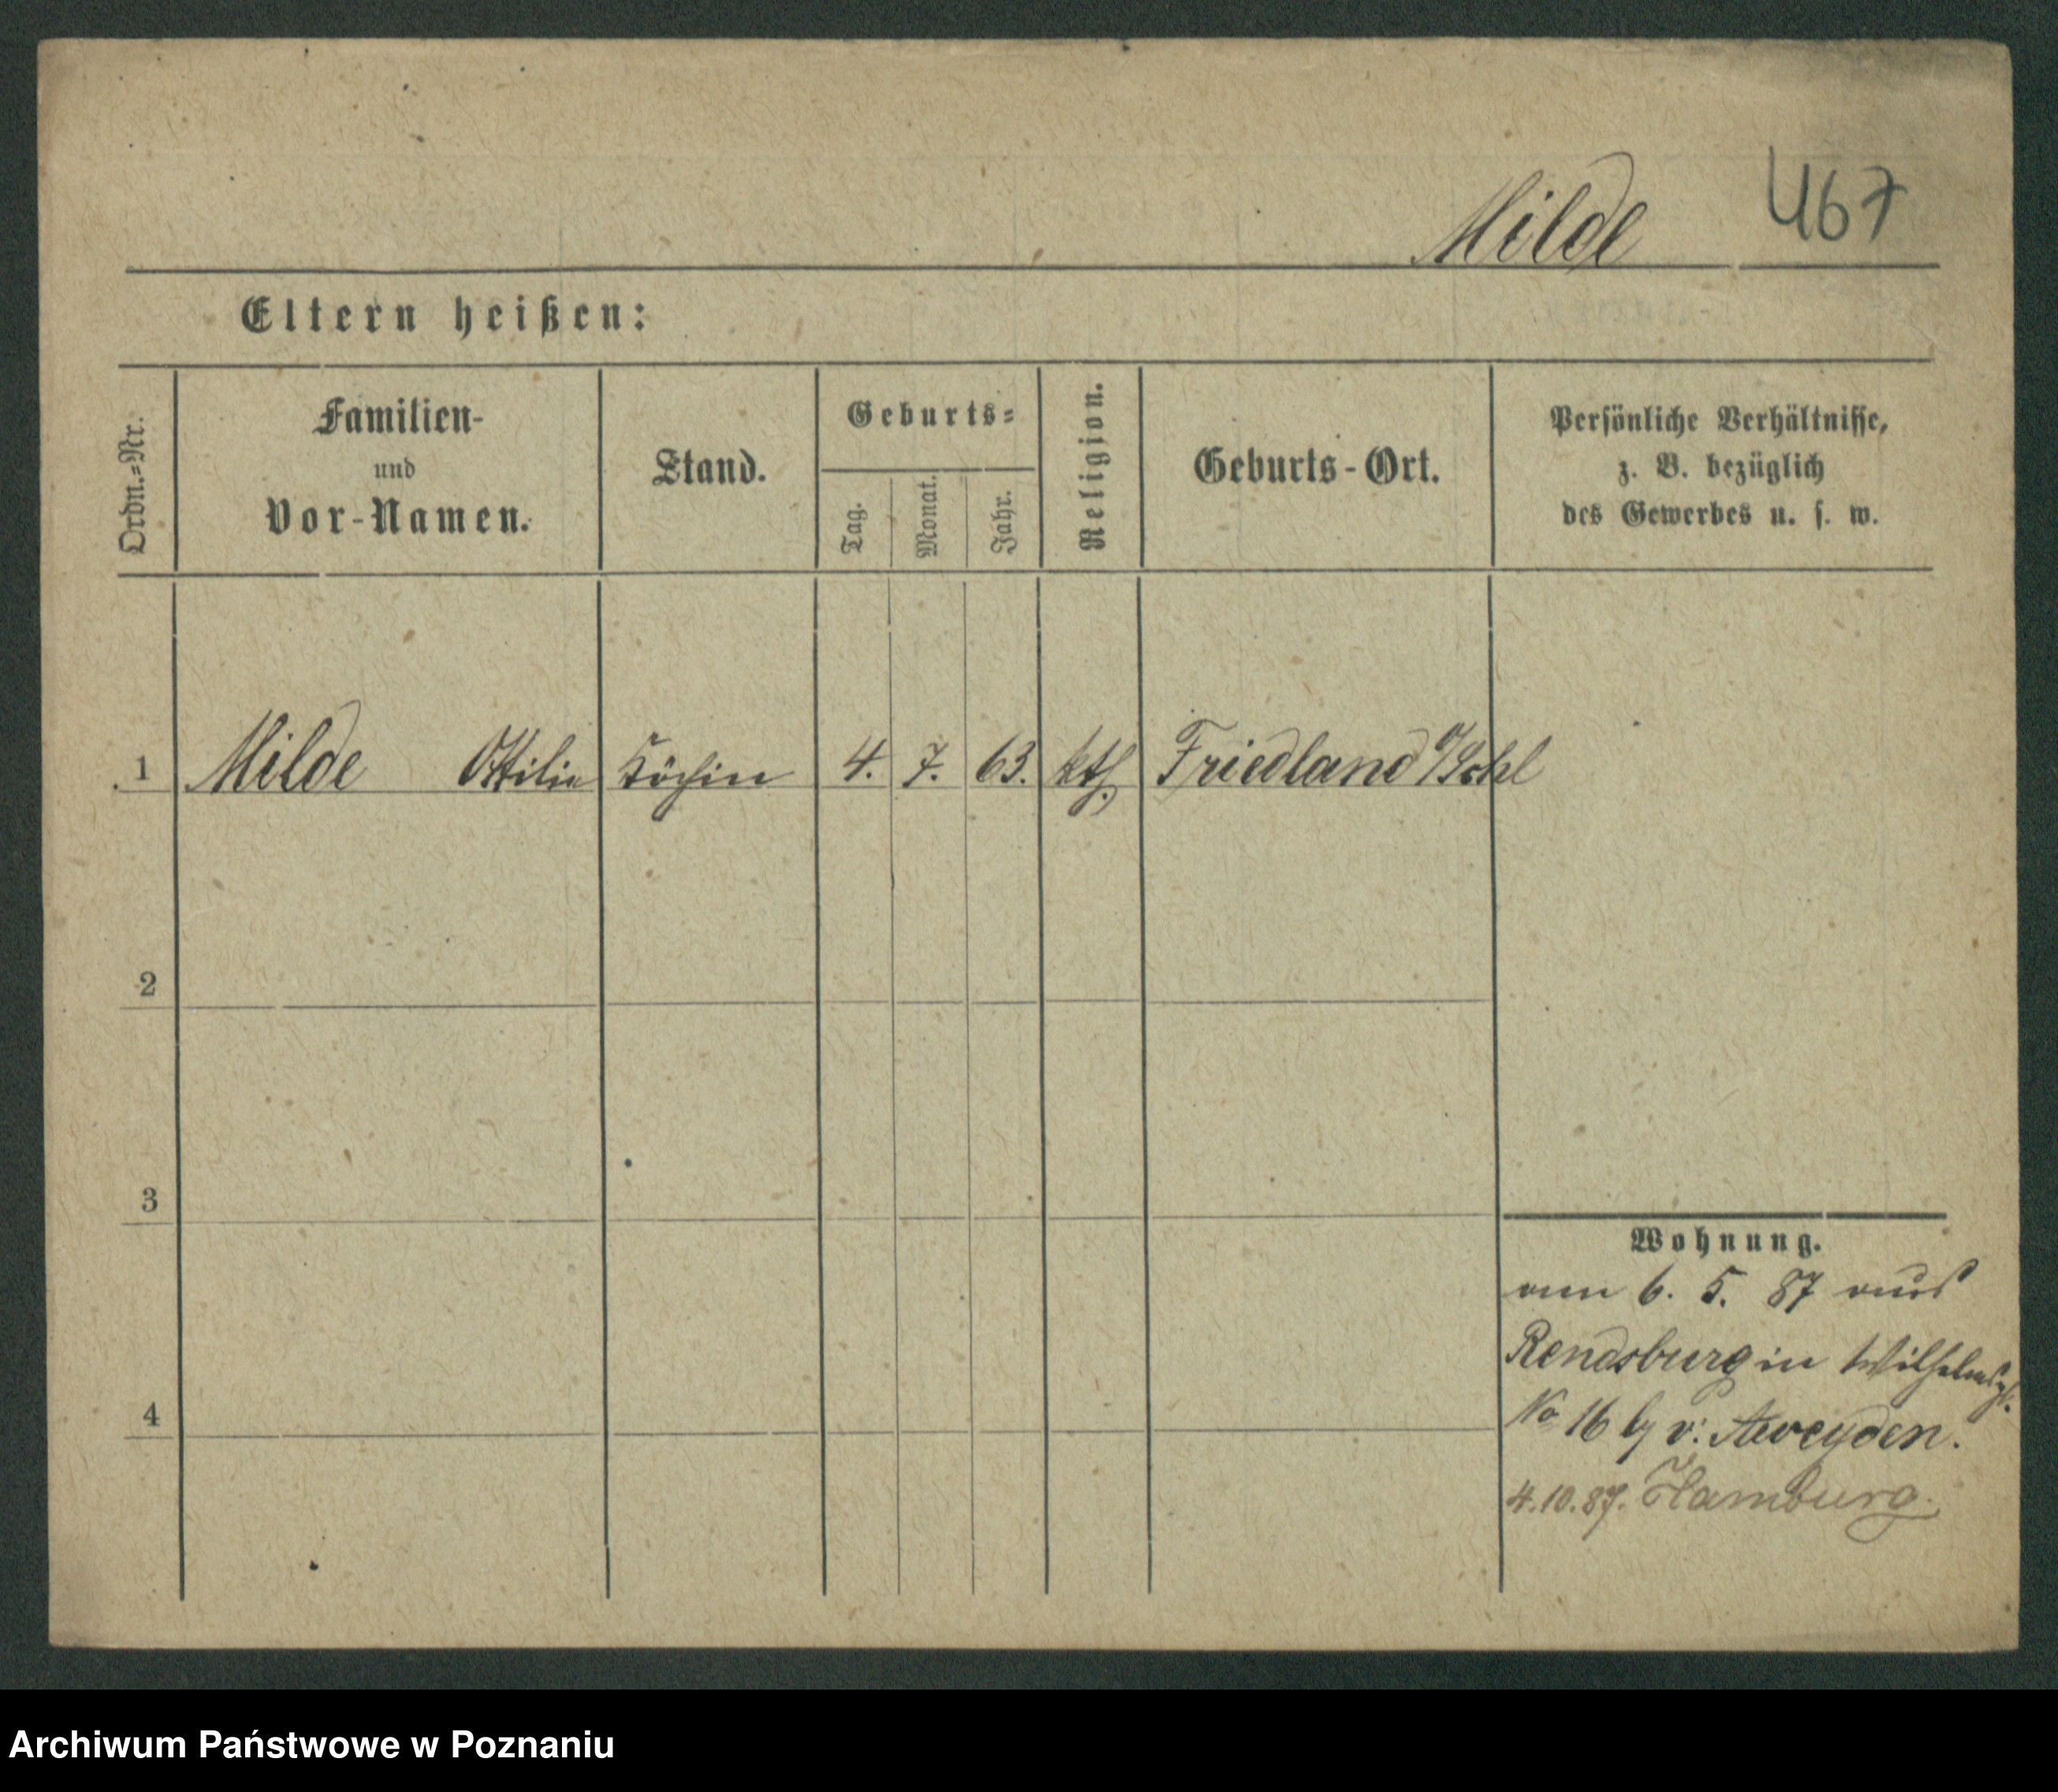 Milde 467
Eltern heißen:
Ordn.=Nr.
Familien-
und
Vor-Namen.
Stand.
Geburts=
Tag.
Monat.
Jahr.
Religion.
Geburts-Ort.
Persönliche Verhältnisse,
z. B. bezüglich
des Gewerbes u. s. w.
1 Milde Ottilie Köchin 4. 7. 63. kth. Friedland O/Schl
2
3
4
Wohnung.
am 6. 5. 87 aus
Rendsburg in Wilhelmspl.
No 16 b/ v: Aweyden.
4.10.87. Hamburg.
Archiwum Państwowe w Poznaniu